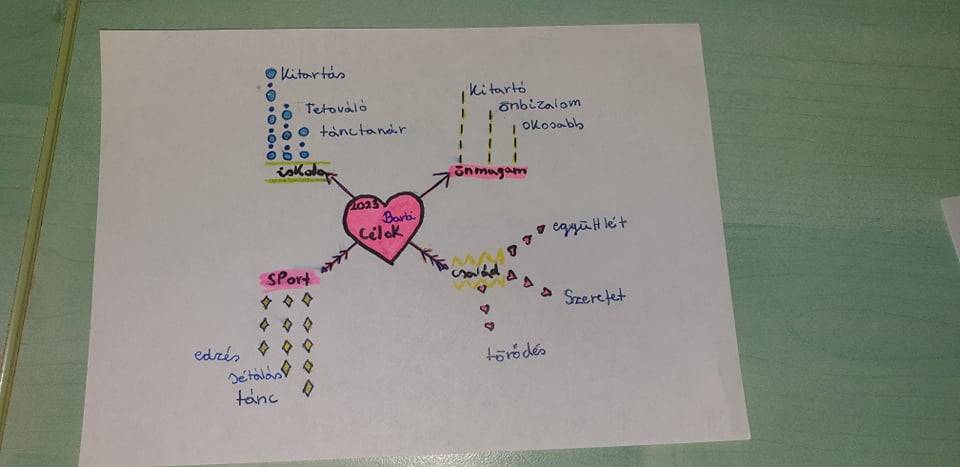 Kitartás
Tetováló
tánctanár
iskola
Kitartó
önbizalom
okosabb
önmagam
2023
Barbi
Célok
Sport
edzés
sétálás
tánc
család
együttlét
Szeretet
törődés